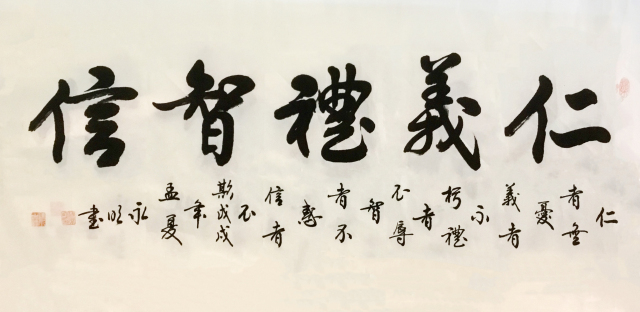 仁義禮智信
仁
者無
憂
義者
不
朽禮
者
不辱
智
者不
信者
不
欺戊戌
年
孟夏
永
明
書